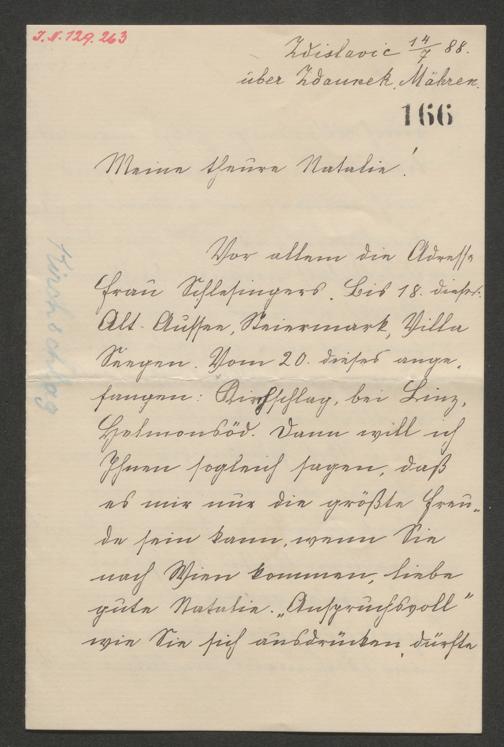 I.N. 129.263
Zdislavic 14/7 88.
über Zdounek, Mähren.
166
Meine theure Natalie!
Vor allem die Adresse
Frau Schlesingers. Bis 18. dieses:
Alt-Aussee, Steiermark, Villa
Seegen. Vom 20. dieses ange-
fangen: Kirchschlag, bei Linz,
Helmonsöd. Dann will ich
Ihnen sogleich sagen, daß
es mir nur die größte Freu-
de sein kann, wenn Sie
nach Wien kommen, liebe
gute Natalie. „Anspruchsvoll"
wie Sie sich ausdrücken, dürfte
Kirchschlag